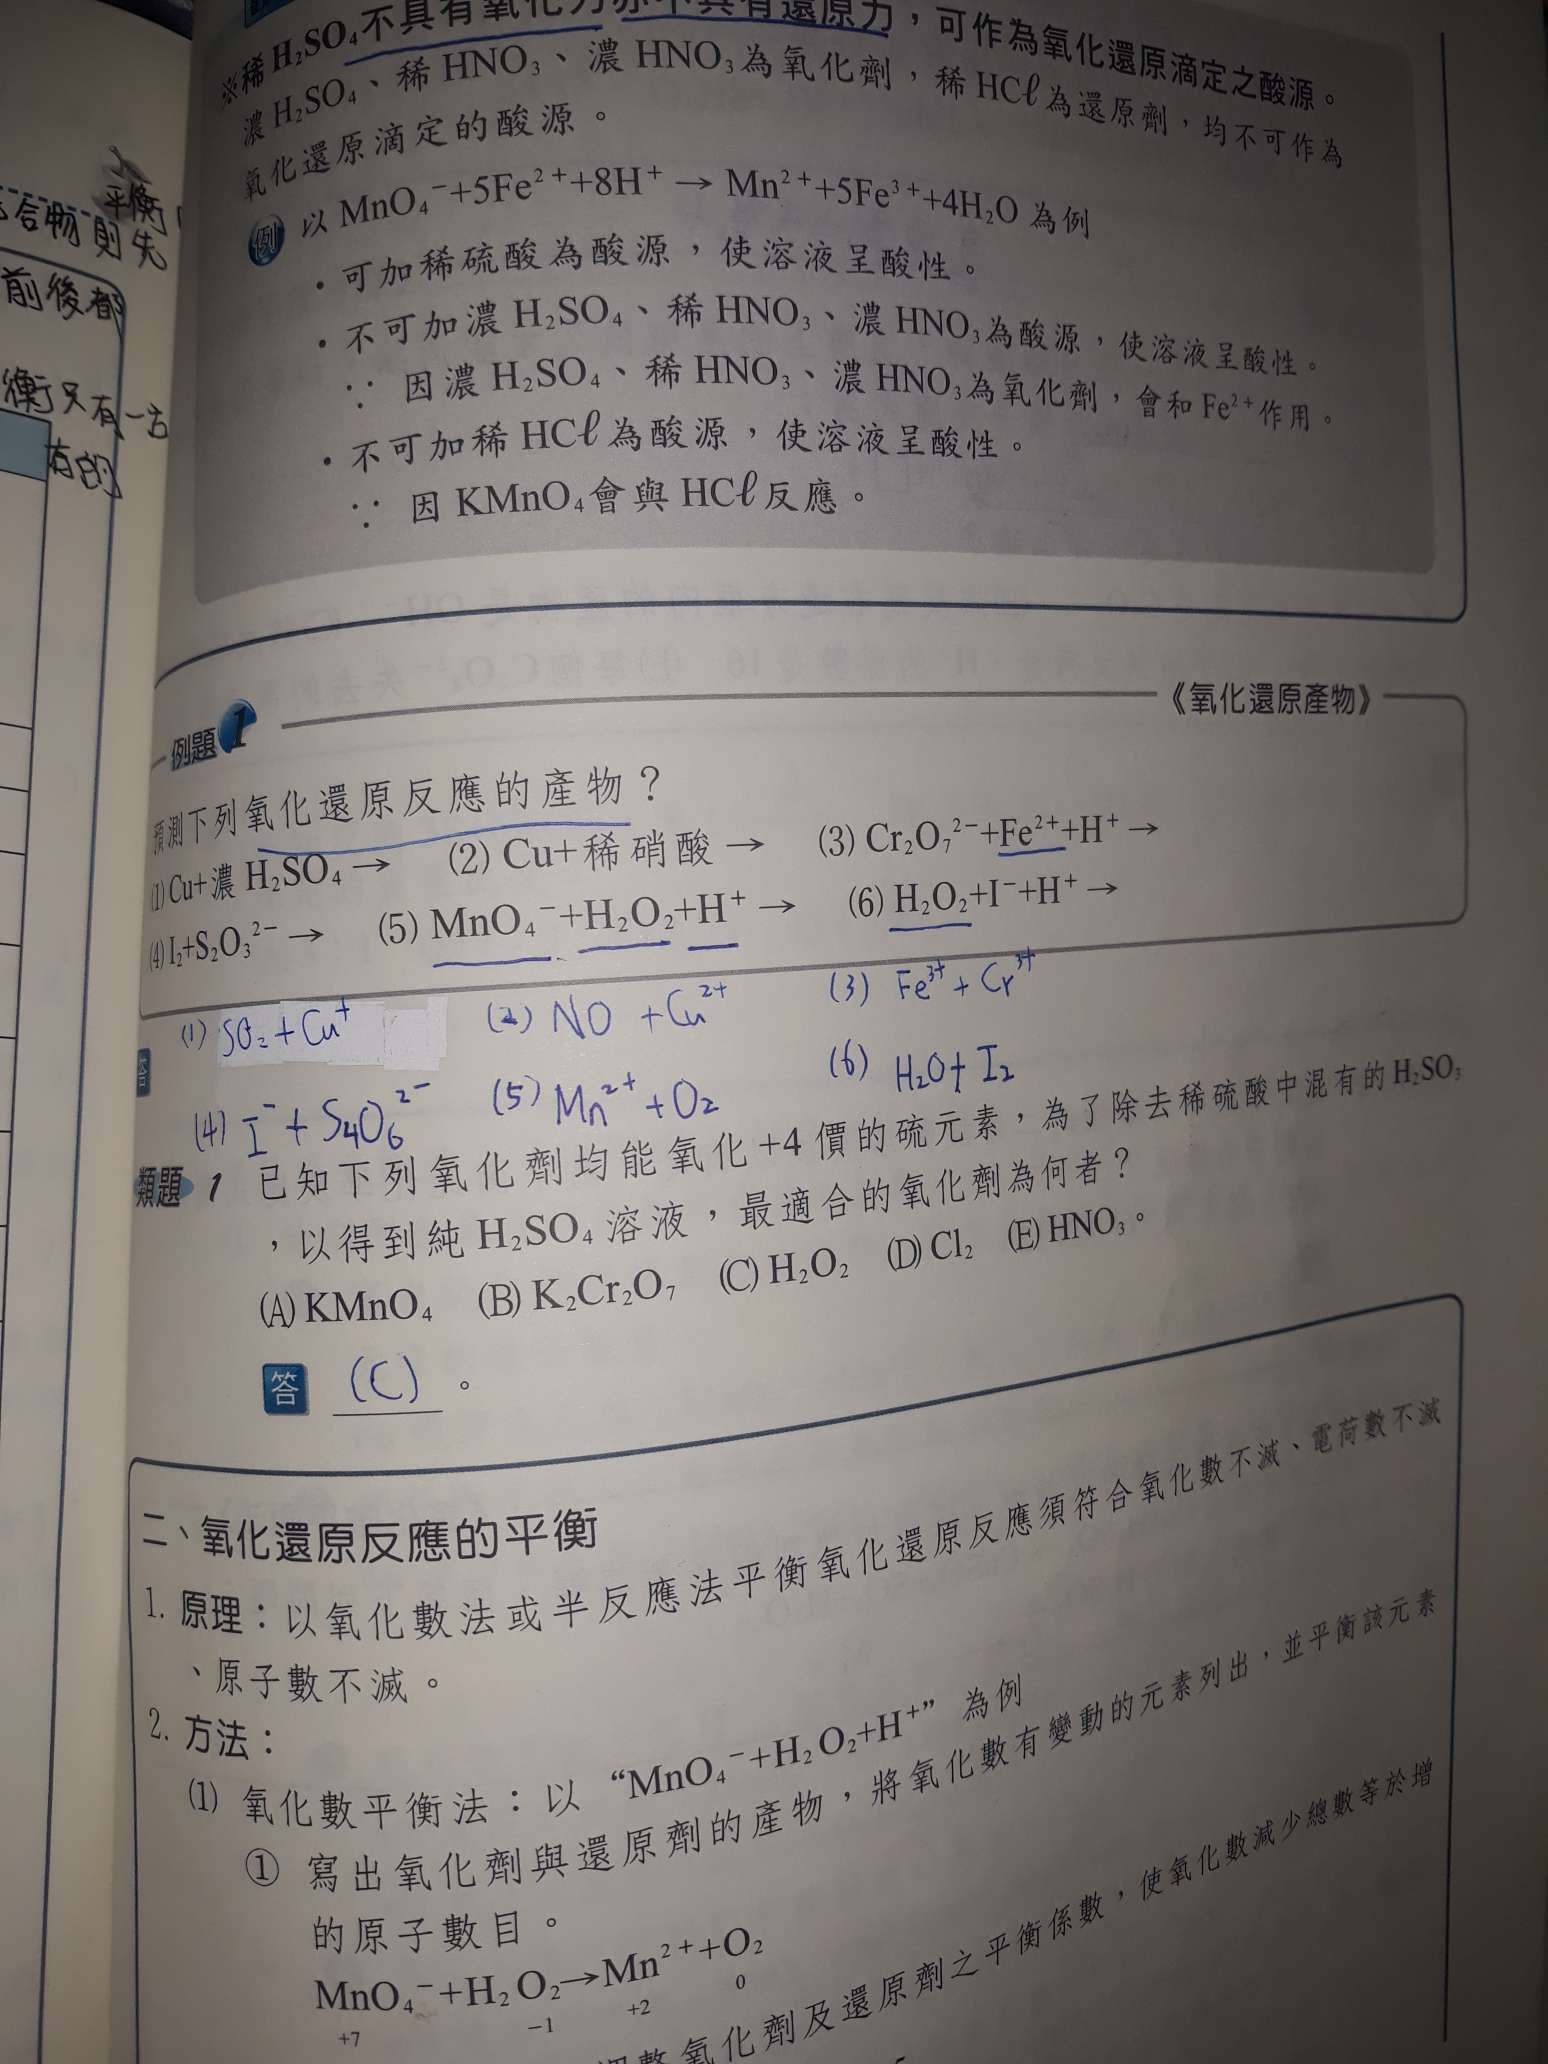 平衡
合物則先
前後都
衡只有一古
有的
※稀H₂SO₄不具有氧化力亦不具有還原力，可作為氧化還原滴定之酸源。
濃H₂SO₄、稀HNO₃、濃HNO₃為氧化劑，稀HCℓ為還原劑，均不可作為
氧化還原滴定的酸源。
例 以MnO₄⁻+5Fe²⁺+8H⁺→Mn²⁺+5Fe³⁺+4H₂O為例
・可加稀硫酸為酸源，使溶液呈酸性。
・不可加濃H₂SO₄、稀HNO₃、濃HNO₃為酸源，使溶液呈酸性。
∵ 因濃H₂SO₄、稀HNO₃、濃HNO₃為氧化劑，會和Fe²⁺作用。
・不可加稀HCℓ為酸源，使溶液呈酸性。
∵ 因KMnO₄會與HCℓ反應。
例題1 《氧化還原產物》
預測下列氧化還原反應的產物？
(1)Cu+濃H₂SO₄→ (2)Cu+稀硝酸→ (3)Cr₂O₇²⁻+Fe²⁺+H⁺→
(4)I₂+S₂O₃²⁻→ (5)MnO₄⁻+H₂O₂+H⁺→ (6)H₂O₂+I⁻+H⁺→
答 (1) SO₂+Cu⁺ (2) NO+Cu²⁺ (3) Fe³⁺+Cr³⁺
(4) I⁻+S₄O₆²⁻ (5) Mn²⁺+O₂ (6) H₂O+I₂
類題1 已知下列氧化劑均能氧化+4價的硫元素，為了除去稀硫酸中混有的H₂SO₃
，以得到純H₂SO₄溶液，最適合的氧化劑為何者？
(A)KMnO₄ (B)K₂Cr₂O₇ (C)H₂O₂ (D)Cl₂ (E)HNO₃。
答 (C)。
二、氧化還原反應的平衡
1. 原理：以氧化數法或半反應法平衡氧化還原反應須符合氧化數不滅、電荷數不滅
、原子數不滅。
2. 方法：
(1) 氧化數平衡法：以“MnO₄⁻+H₂O₂+H⁺”為例
① 寫出氧化劑與還原劑的產物，將氧化數有變動的元素列出，並平衡該元素
的原子數目。
MnO₄⁻+H₂O₂→Mn²⁺+O₂
+7 −1 +2 0
氧化劑及還原劑之平衡係數，使氧化數減少總數等於增